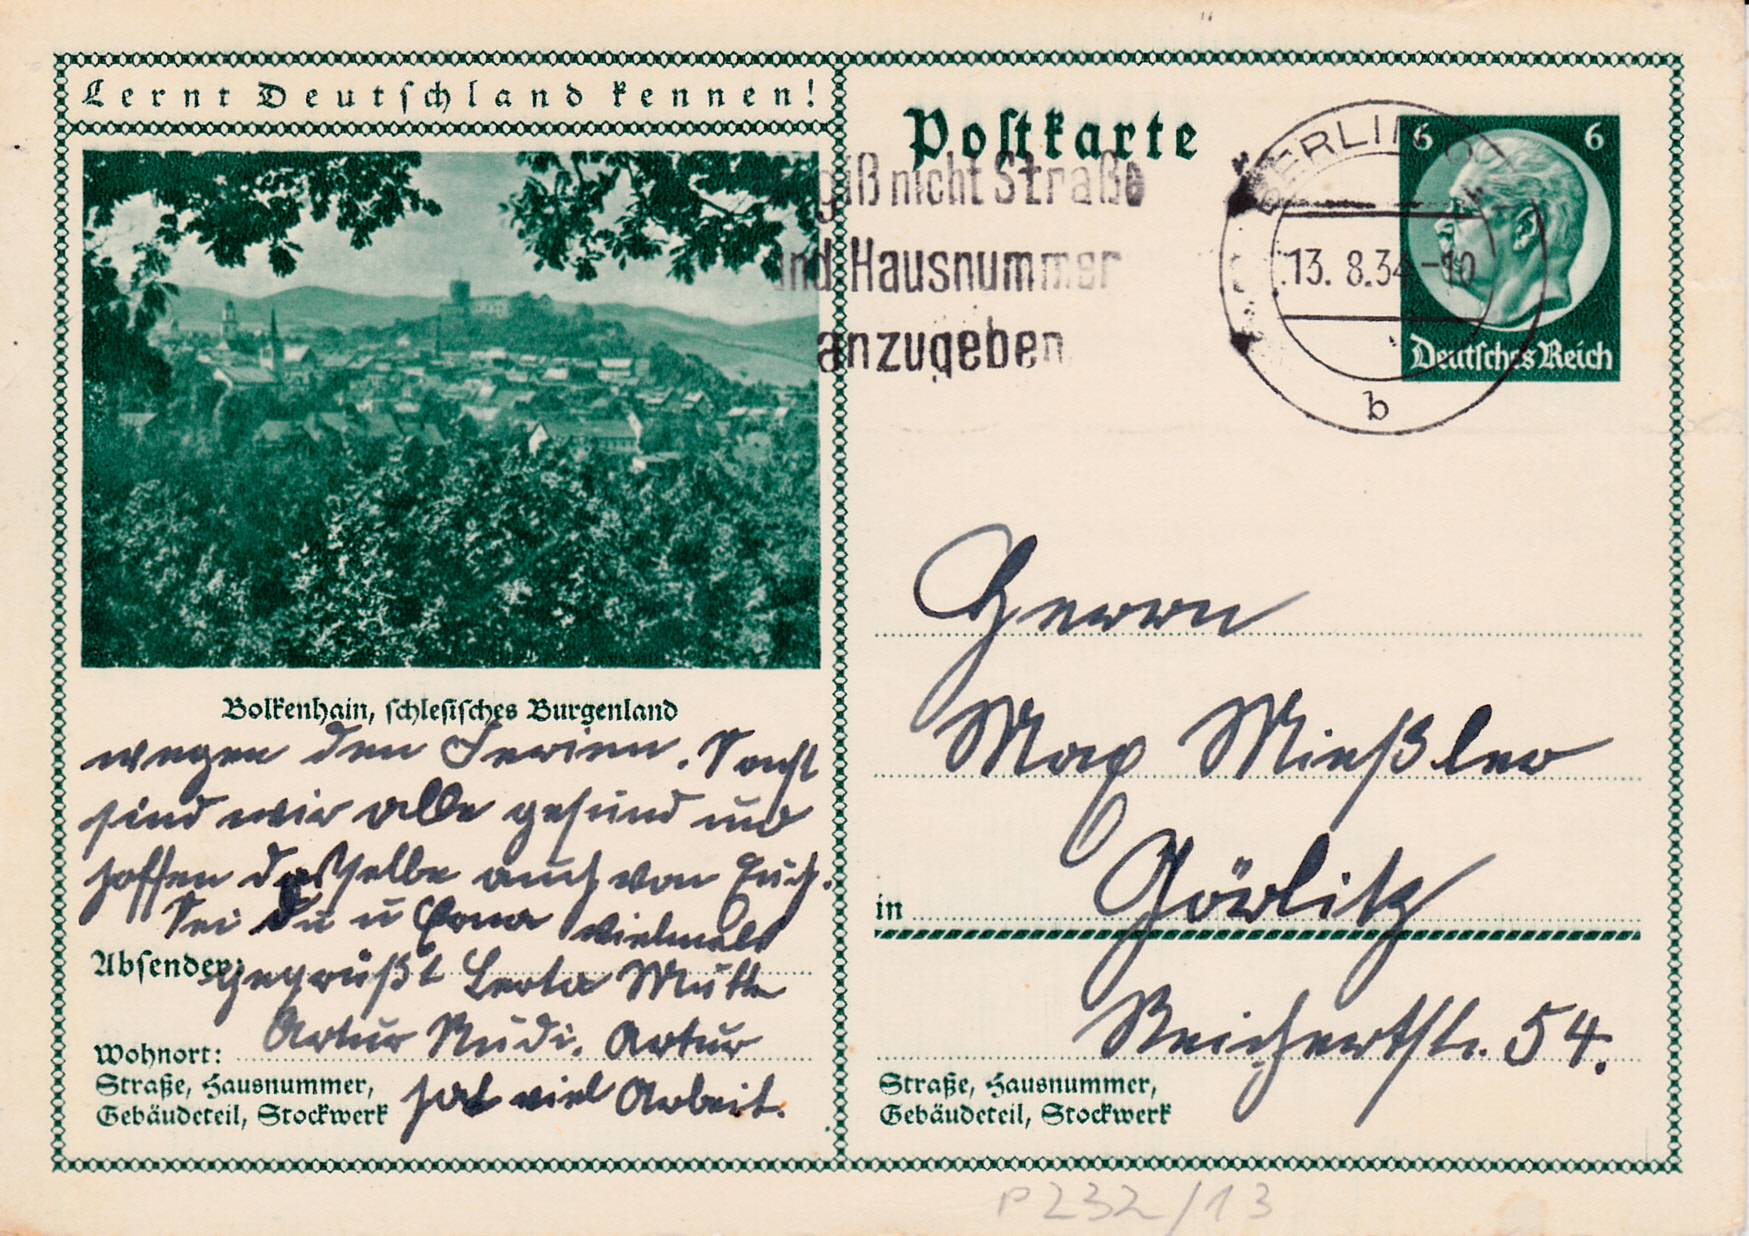 Lernt Deutschland kennen!
Bolkenhain, schlesisches Burgenland
wegen den Ferien. Sonst
sind wir alle gesund und
hoffen dasselbe auch von Euch.
Sei Du u Erna vielmals
Absender:
gegrüßt Mutter
Artur Rudi. Artur
Wohnort:
Straße, Hausnummer,
Gebäudeteil, Stockwerk
hat viel Arbeit.
Postkarte
giß nicht Straße
und Hausnummer
anzugeben
BERLIN
13.8.34-10
b
6 6
Deutsches Reich
Herrn
Max Mießler
in Görlitz
Reichertstr. 54.
Straße, Hausnummer,
Gebäudeteil, Stockwerk
P232/13